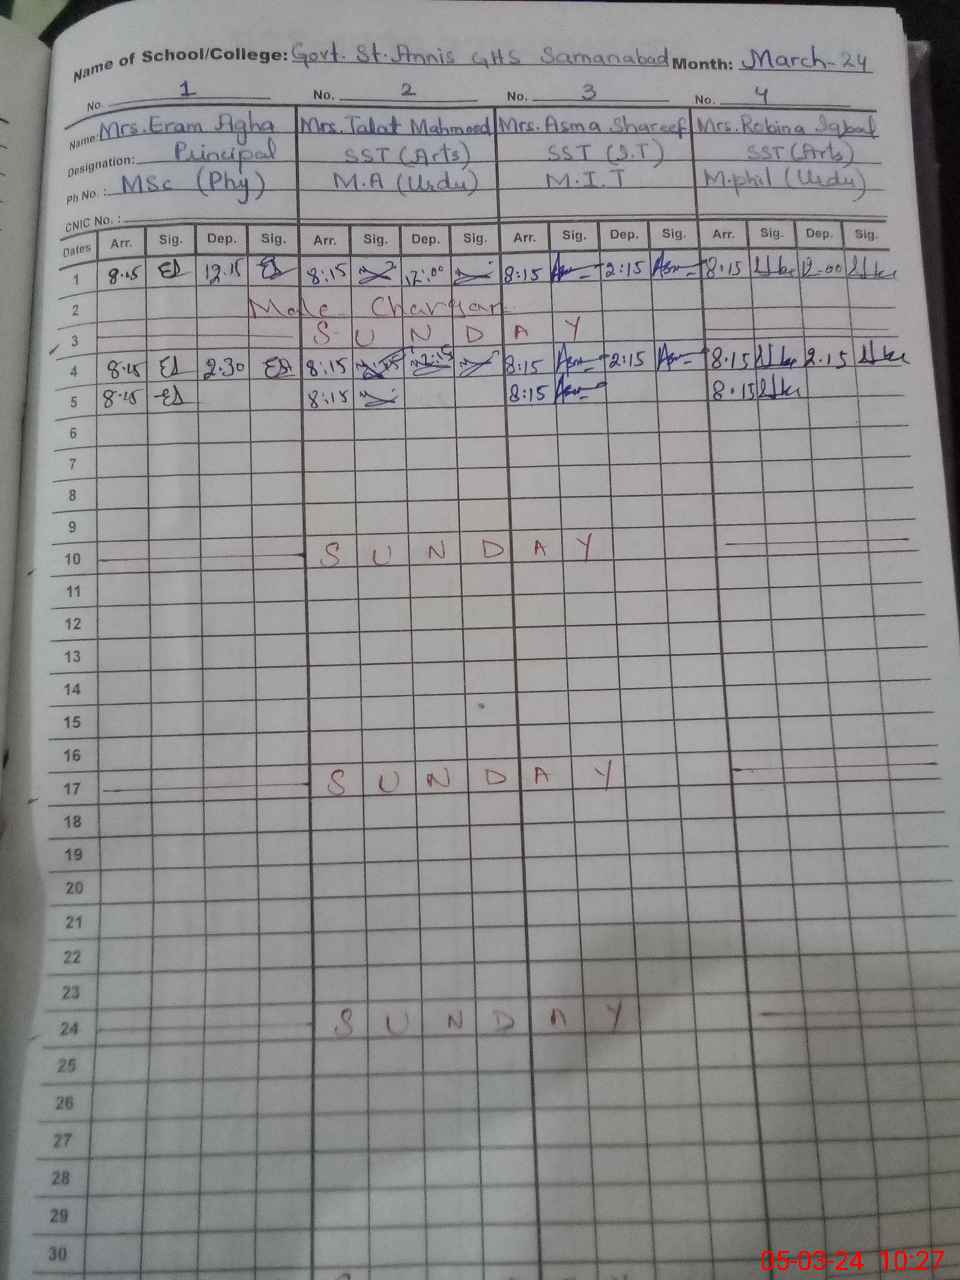 Name of School/College: Govt. St. Annis GHS Samanabad Month: March-24
No. 1 No. 2 No. 3 No. 4
Name: Mrs. Eram Agha Mrs. Talat Mahmood Mrs. Asma Shareef Mrs. Robina Iqbal
Designation: Principal SST (Arts) SST (I.T) SST (Arts)
Ph No.: MSc (Phy) M.A (Urdu) M.I.T M.phil (Urdu)
CNIC No.:
Dates Arr. Sig. Dep. Sig. Arr. Sig. Dep. Sig. Arr. Sig. Dep. Sig. Arr. Sig. Dep. Sig.
1 8:15 12.15 8:15 12:00 8:15 2:15 8:15 12.00
2
3 S U N D A Y
4 8:15 2.30 8:15 8:15 2:15 8:15 2.15
5 8:15 8:15 8:15 8:15
6
7
8
9
10 S U N D A Y
11
12
13
14
15
16
17 S U N D A Y
18
19
20
21
22
23
24 S U N D A Y
25
26
27
28
29
30
05-03-24 10:27